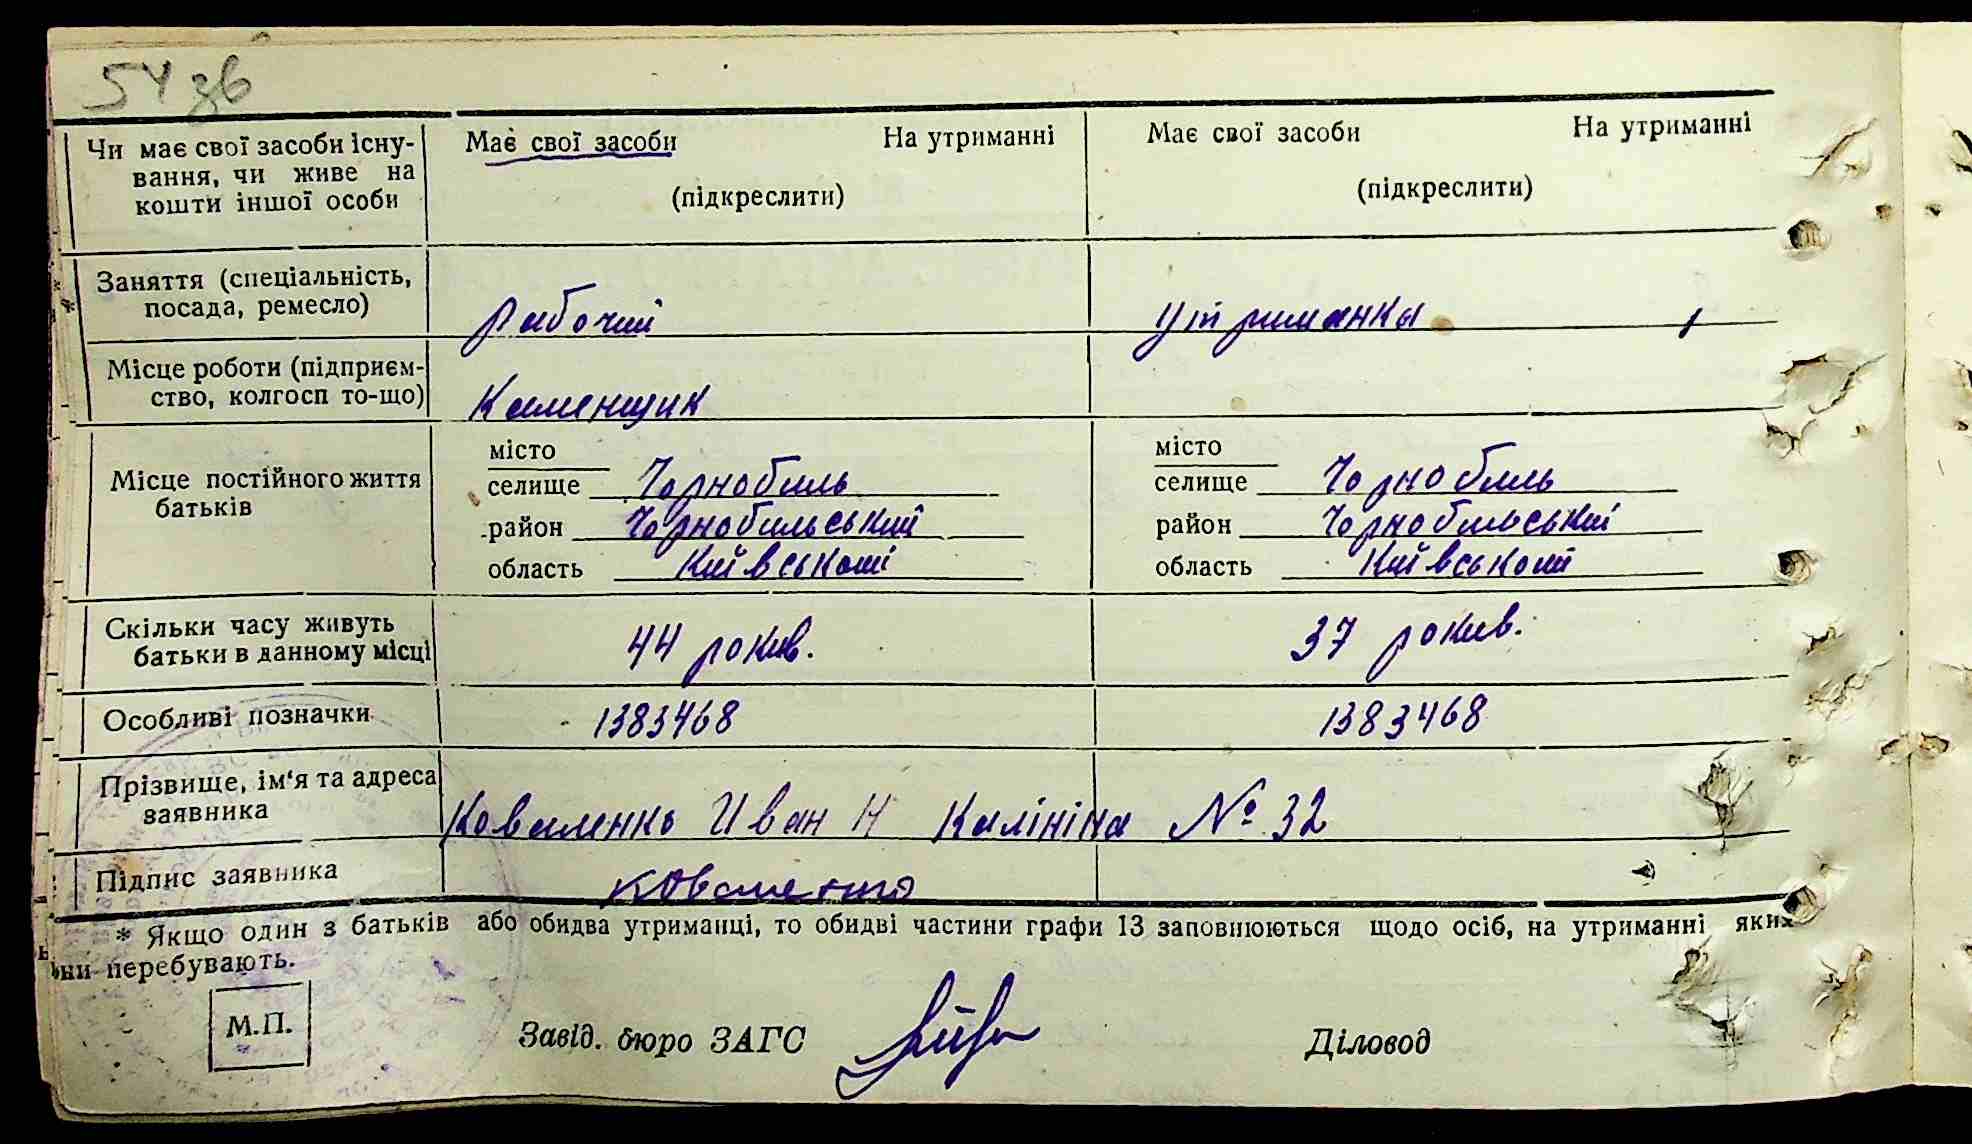 54 зв
Чи має свої засоби існу- Має свої засоби На утриманні Має свої засоби На утриманні
вання, чи живе на (підкреслити) (підкреслити)
кошти іншої особи
Заняття (спеціальність,
посада, ремесло) рабочий утриманка
Місце роботи (підприєм-
ство, колгосп то-що) Каменщик
місто місто
Місце постійного життя селище Чорнобиль селище Чорнобиль
батьків район Чорнобильський район Чорнобильський
область Київської область Київської
Скільки часу живуть
батьки в данному місці 44 рокив. 37 рокив.
Особливі позначки 1383468 1383468
Прізвище, ім'я та адреса
заявника Коваленко Иван Н Калініна № 32
Підпис заявника Коваленко
* Якщо один з батьків або обидва утриманці, то обидві частини графи 13 заповнюються щодо осіб, на утриманні яких
вни перебувають.
М.П. Завід. бюро ЗАГС Діловод